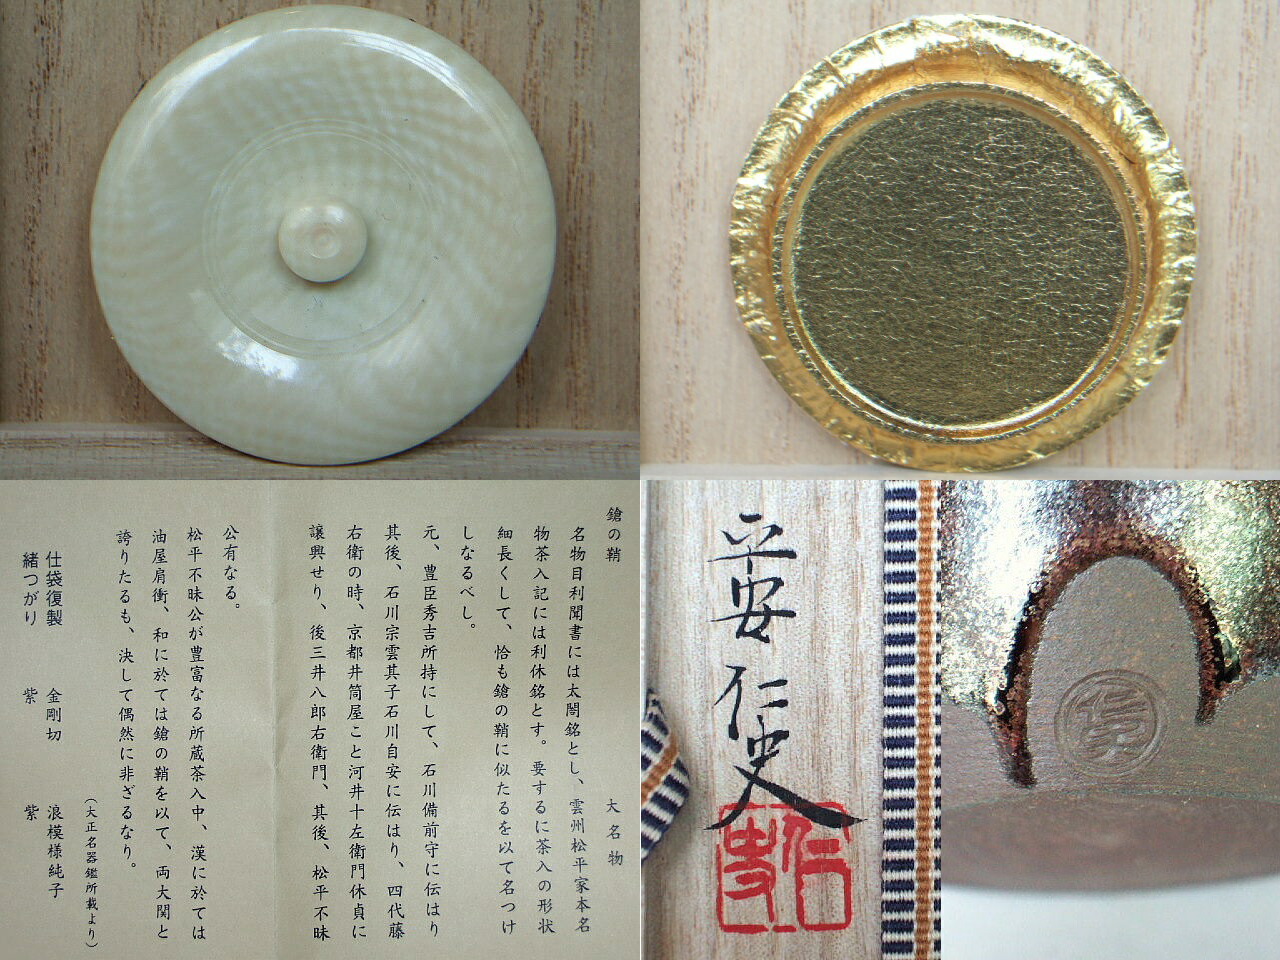 鎗の鞘　大名物
名物目利聞書には太閤銘とし、雲州松平家本名
物茶入記には利休銘とす。要するに茶入の形状
細長くして、恰も鎗の鞘に似たるを以て名つけ
しなるべし。
元、豊臣秀吉所持にして、石川備前守に伝はり
其後、石川宗雲其子石川自安に伝はり、四代藤
右衛の時、京都井筒屋こと河井十左衛門休貞に
譲興せり、後三井八郎右衛門、其後、松平不昧
公有なる。
松平不昧公が豊富なる所蔵茶入中、漢に於ては
油屋肩衝、和に於ては鎗の鞘を以て、両大関と
誇りたるも、決して偶然に非ざるなり。
（大正名器鑑所載より）
仕袋復製　金剛切　浪模様純子
緒つがり　紫　紫
平安仁史
仁史
仁史